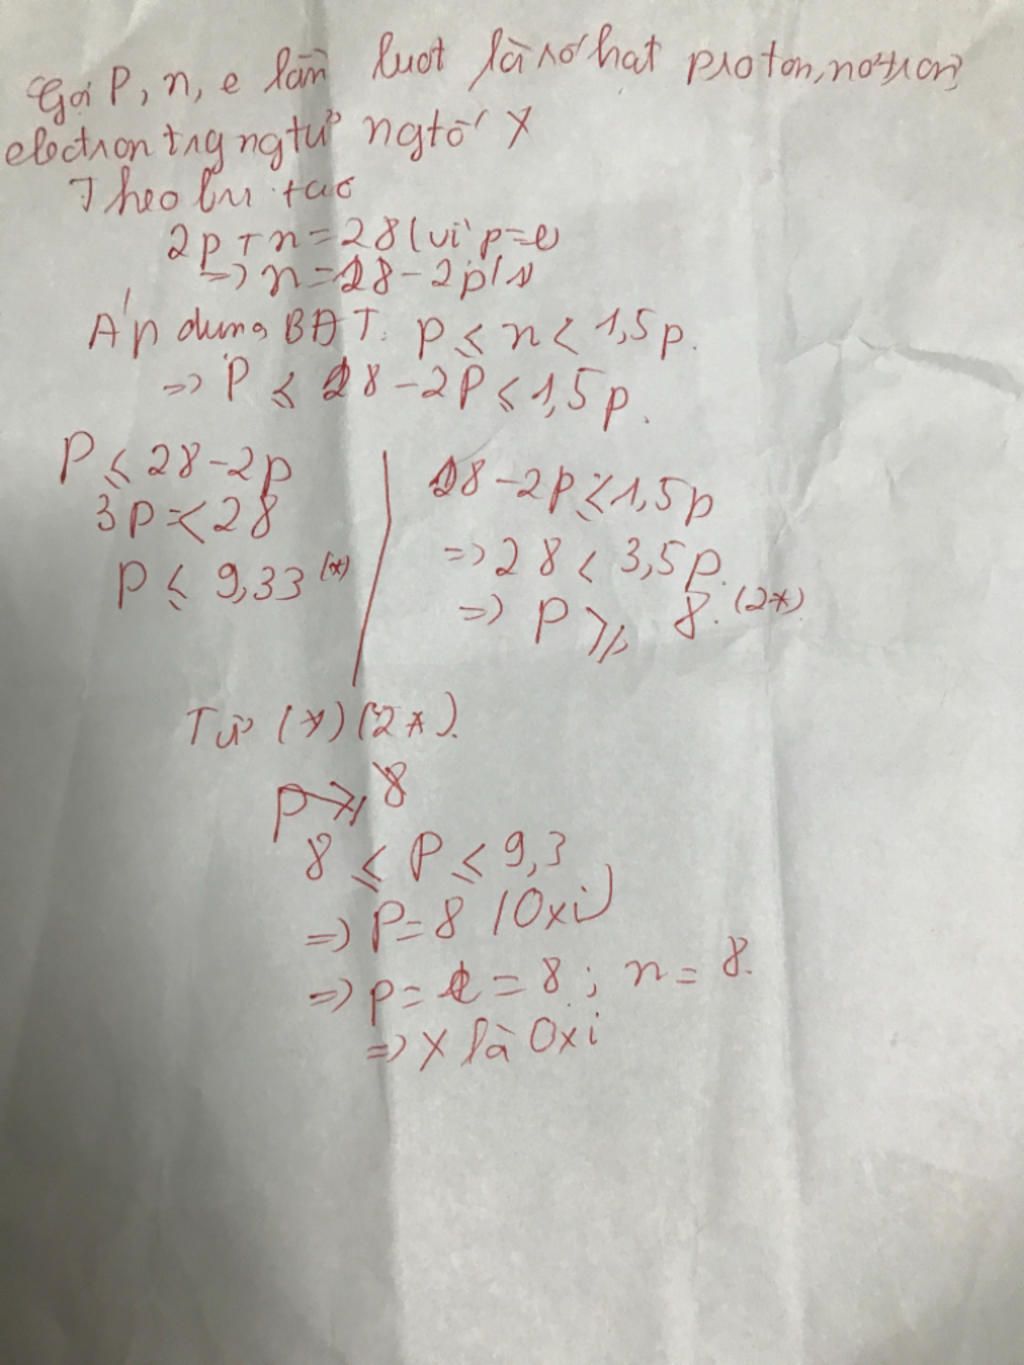 Gọi P, n, e lần lượt là số hạt proton, nơtron,
electron trg ngtử ngtố X
Theo bài tao
2p + n = 28 (vì p=e)
=> n = 28 - 2p (1)
Áp dụng BĐT: p ≤ n < 1,5p.
=> P ≤ 28 - 2P ≤ 1,5p.
P ≤ 28 - 2p
3p ≤ 28
P ≤ 9,33 (*)
28 - 2p ≤ 1,5p
=> 28 < 3,5p.
=> P ≥ 8. (2*)
Từ (*) (2*).
8 ≤ P ≤ 9,3
=> P = 8 (Oxi)
=> p = e = 8; n = 8.
=> X là Oxi